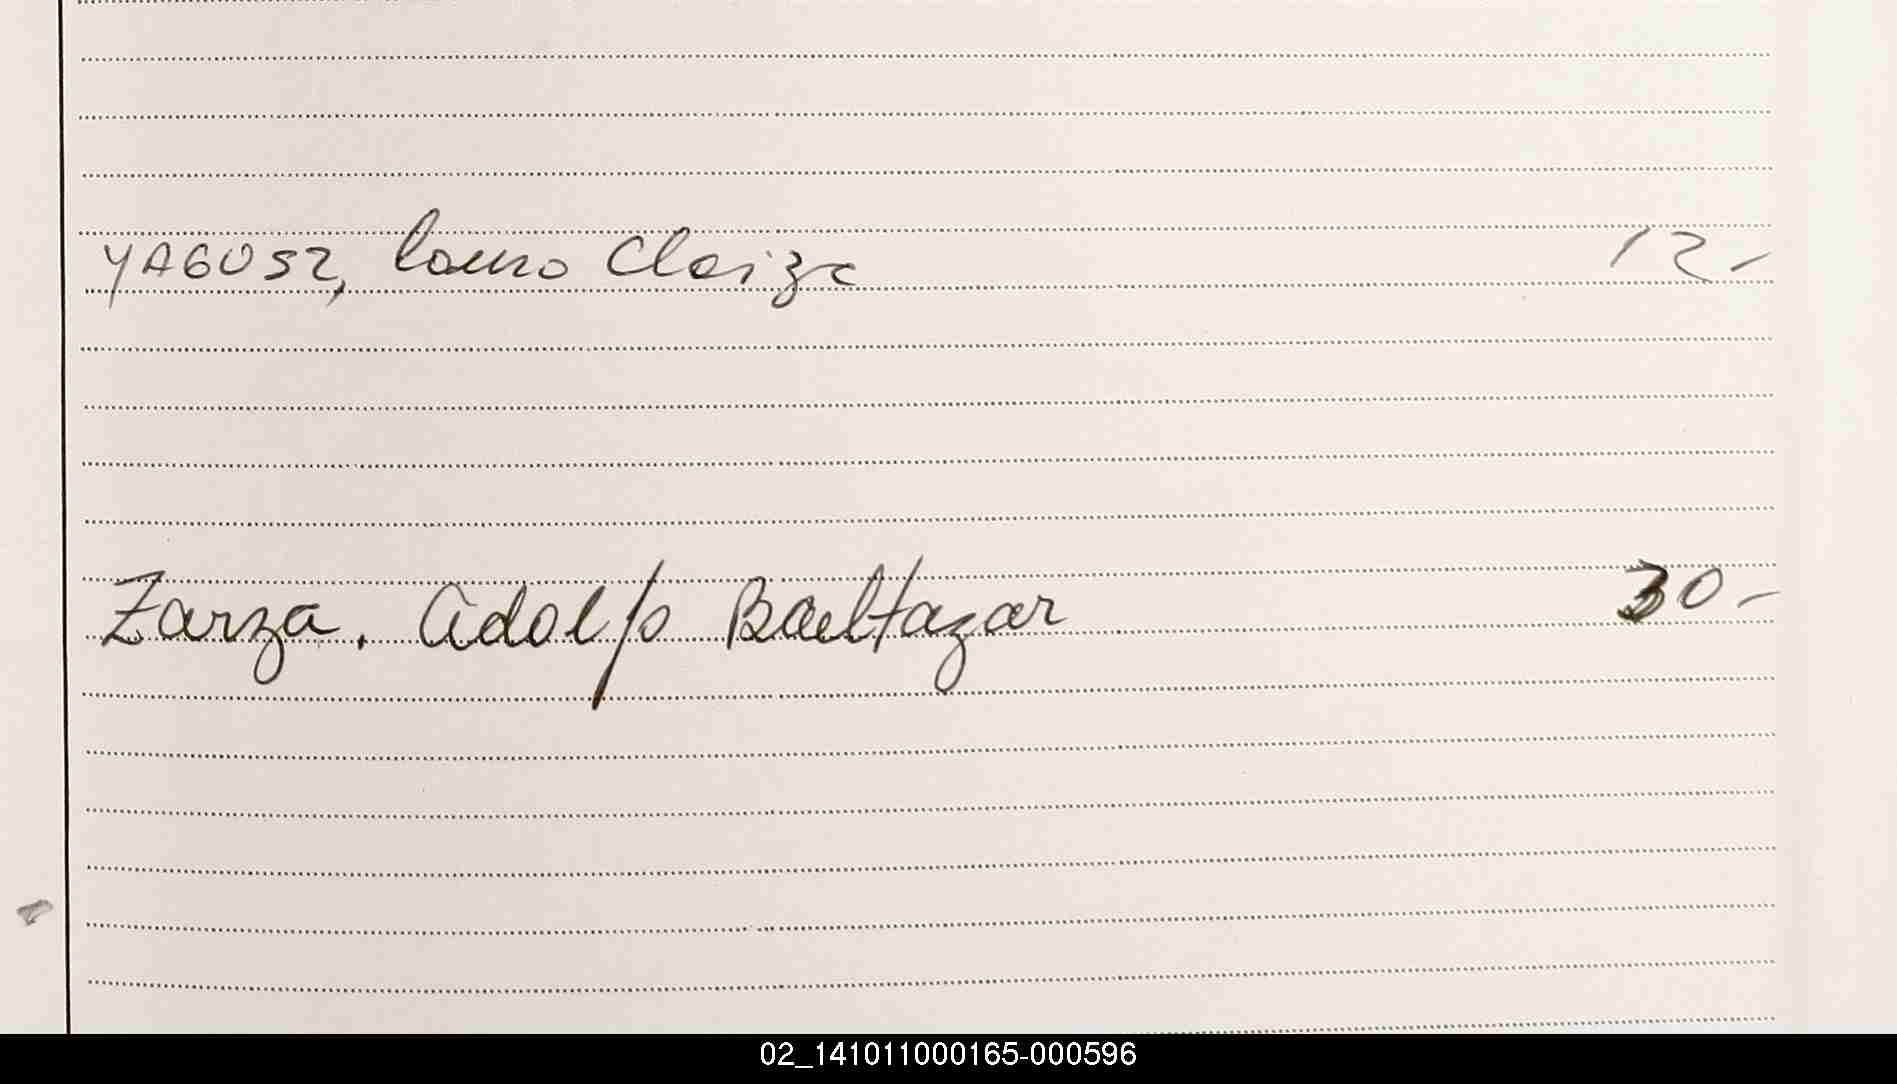 YAGUSZ,
12-
Zarza. Adolfo Baltazar 30-
02_141011000165-000596